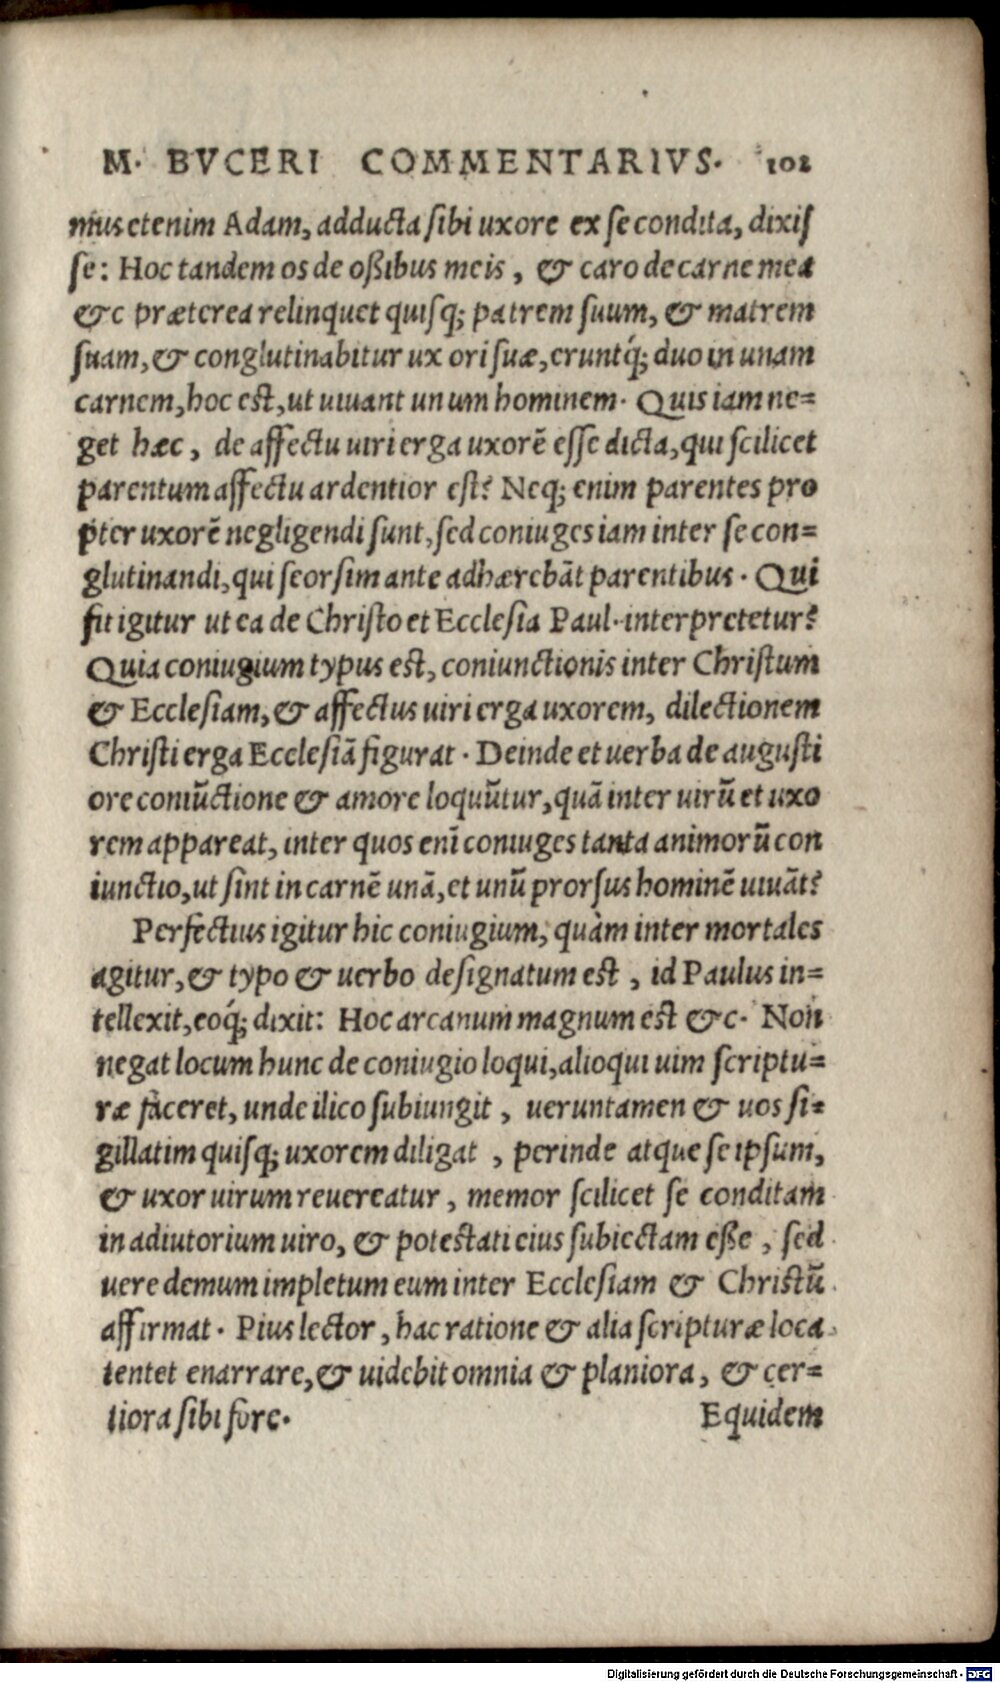 M. BVCERI COMMENTARIVS. 102
mus etenim Adam, adducta sibi uxore ex se condita, dixis
se: Hoc tandem os de oßibus meis, & caro de carne mea
&c præterea relinquet quisq; patrem suum, & matrem
suam, & conglutinabitur uxori suæ, erunt q́; duo in unam
carnem, hoc est, ut uiuant unum hominem. Quis iam ne=
get hæc, de affectu uiri erga uxorẽ esse dicta, qui scilicet
parentum affectu ardentior est? Neq; enim parentes pro
pter uxorẽ negligendi sunt, sed coniuges iam inter se con=
glutinandi, qui seorsim ante adhærebãt parentibus. Qui
fit igitur ut ea de Christo et Ecclesia Paul. interpretetur?
Quia coniugium typus est, coniunctionis inter Christum
& Ecclesiam, & affectus uiri erga uxorem, dilectionem
Christi erga Ecclesiã figurat. Deinde et uerba de augusti
ore coniũctione & amore loquũtur, quã inter uirũ et uxo
rem appareat, inter quos enĩ coniuges tanta animorũ con
iunctio, ut sint in carnẽ unã, et unũ prorsus hominẽ uiuãt?
Perfectius igitur hic coniugium, quàm inter mortales
agitur, & typo & uerbo designatum est, id Paulus in=
tellexit, eoq́; dixit: Hoc arcanum magnum est &c. Non
negat locum hunc de coniugio loqui, alioqui uim scriptu=
ræ faceret, unde ilico subiungit, ueruntamen & uos si=
gillatim quisq; uxorem diligat, perinde atque se ipsum,
& uxor uirum reuereatur, memor scilicet se conditam
in adiutorium uiro, & potestati eius subiectam eße, sed
uere demum impletum eum inter Ecclesiam & Christũ
affirmat. Pius lector, hac ratione & alia scripturæ loca
tentet enarrare, & uidebit omnia & planiora, & cer=
tiora sibi fore.
Equidem
Digitalisierung gefördert durch die Deutsche Forschungsgemeinschaft - DFG